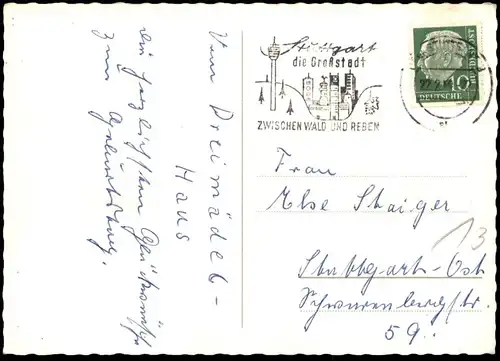 Vom Dreimädel-
Haus
die herzlichsten Glückwünsche
zum Geburtstag.
Stuttgart
die Großstadt
ZWISCHEN WALD UND REBEN
DEUTSCHE BUNDESPOST
10
Frau
Else Staiger
13
Stuttgart-Ost
Schwarenbergstr.
59.